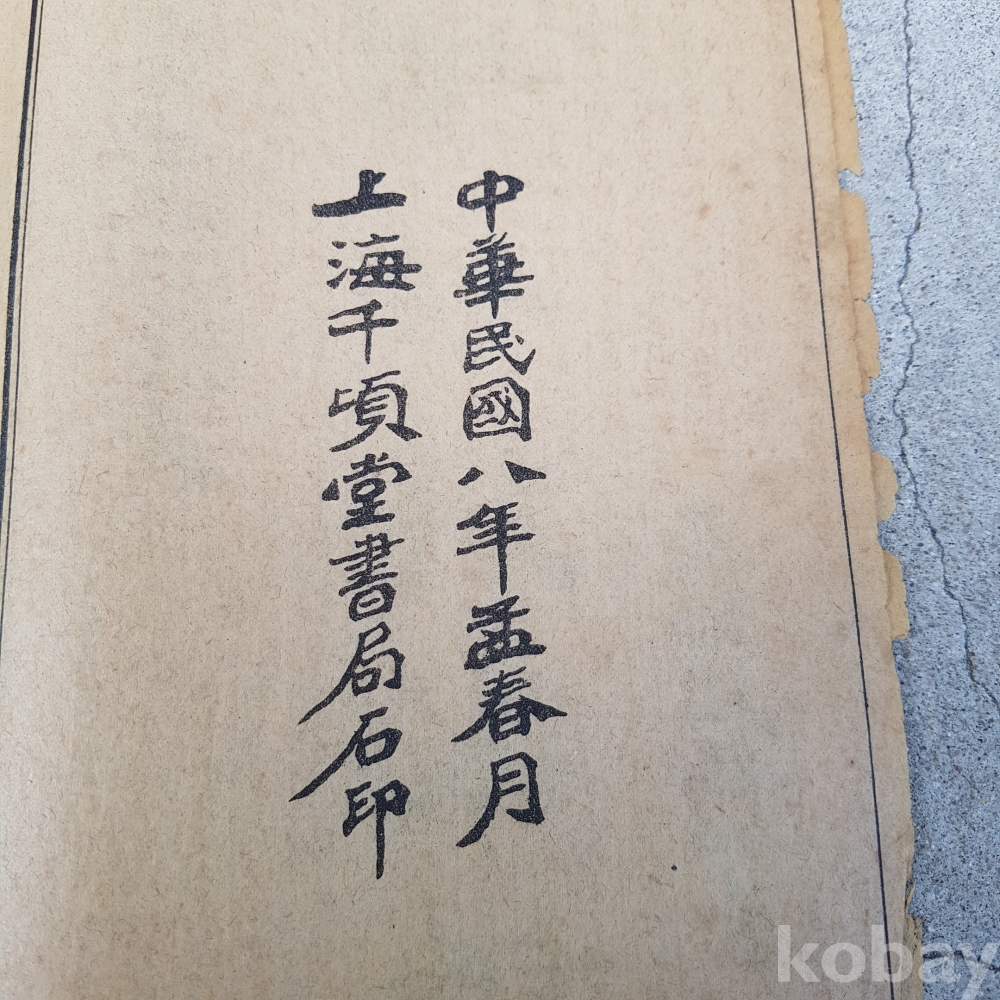 中華民國八年孟春月
上海千頃堂書局石印
kobay